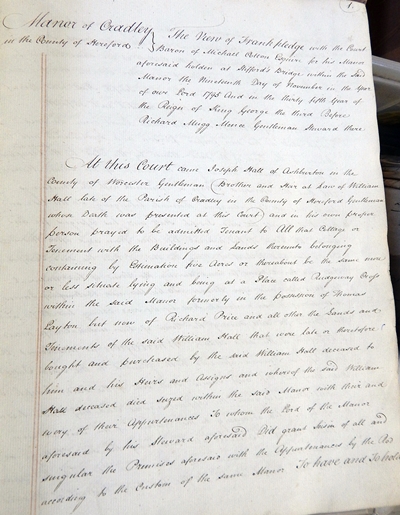 Manor of Cradley
in the County of Hereford
The View of Frankpledge with the Court
Baron of Michael Esquire for his Manor
aforesaid holden at Stiffords Bridge within the said
Manor the Nineteenth Day of November in the Year
of our Lord 1795 And in the thirty fifth Year of
the Reign of King George the third Before
Richard Mugg Mence Gentleman Steward there
At this Court came Joseph Hall of in the
County of Worcester Gentleman (Brother and Heir at Law of William
Hall late of the Parish of Cradley in the County of Hereford Gentleman
whose Death was presented at this Court) and in his own proper
person prayed to be admitted Tenant to All that Cottage or
Tenement with the Buildings and Lands thereunto belonging
containing by Estimation five Acres or thereabouts be the same more
or less situate lying and being at a Place called Ridgway Cross
within the said Manor formerly in the possession of Thomas
Layton but now of Richard Price and all other the Lands and
Tenements of the said William Hall that were late or theretofore
bought and purchased by the said William Hall deceased to
him and his Heirs and Assigns and whereof the said William
Hall deceased died seized within the said Manor with their and
every of their Appurtenances To whom the Lord of the Manor
aforesaid by his Steward aforesaid Did grant Seisin of all and
singular the Premises aforesaid with the Appurtenances by the Rod
according to the Custom of the same Manor To have and To hold